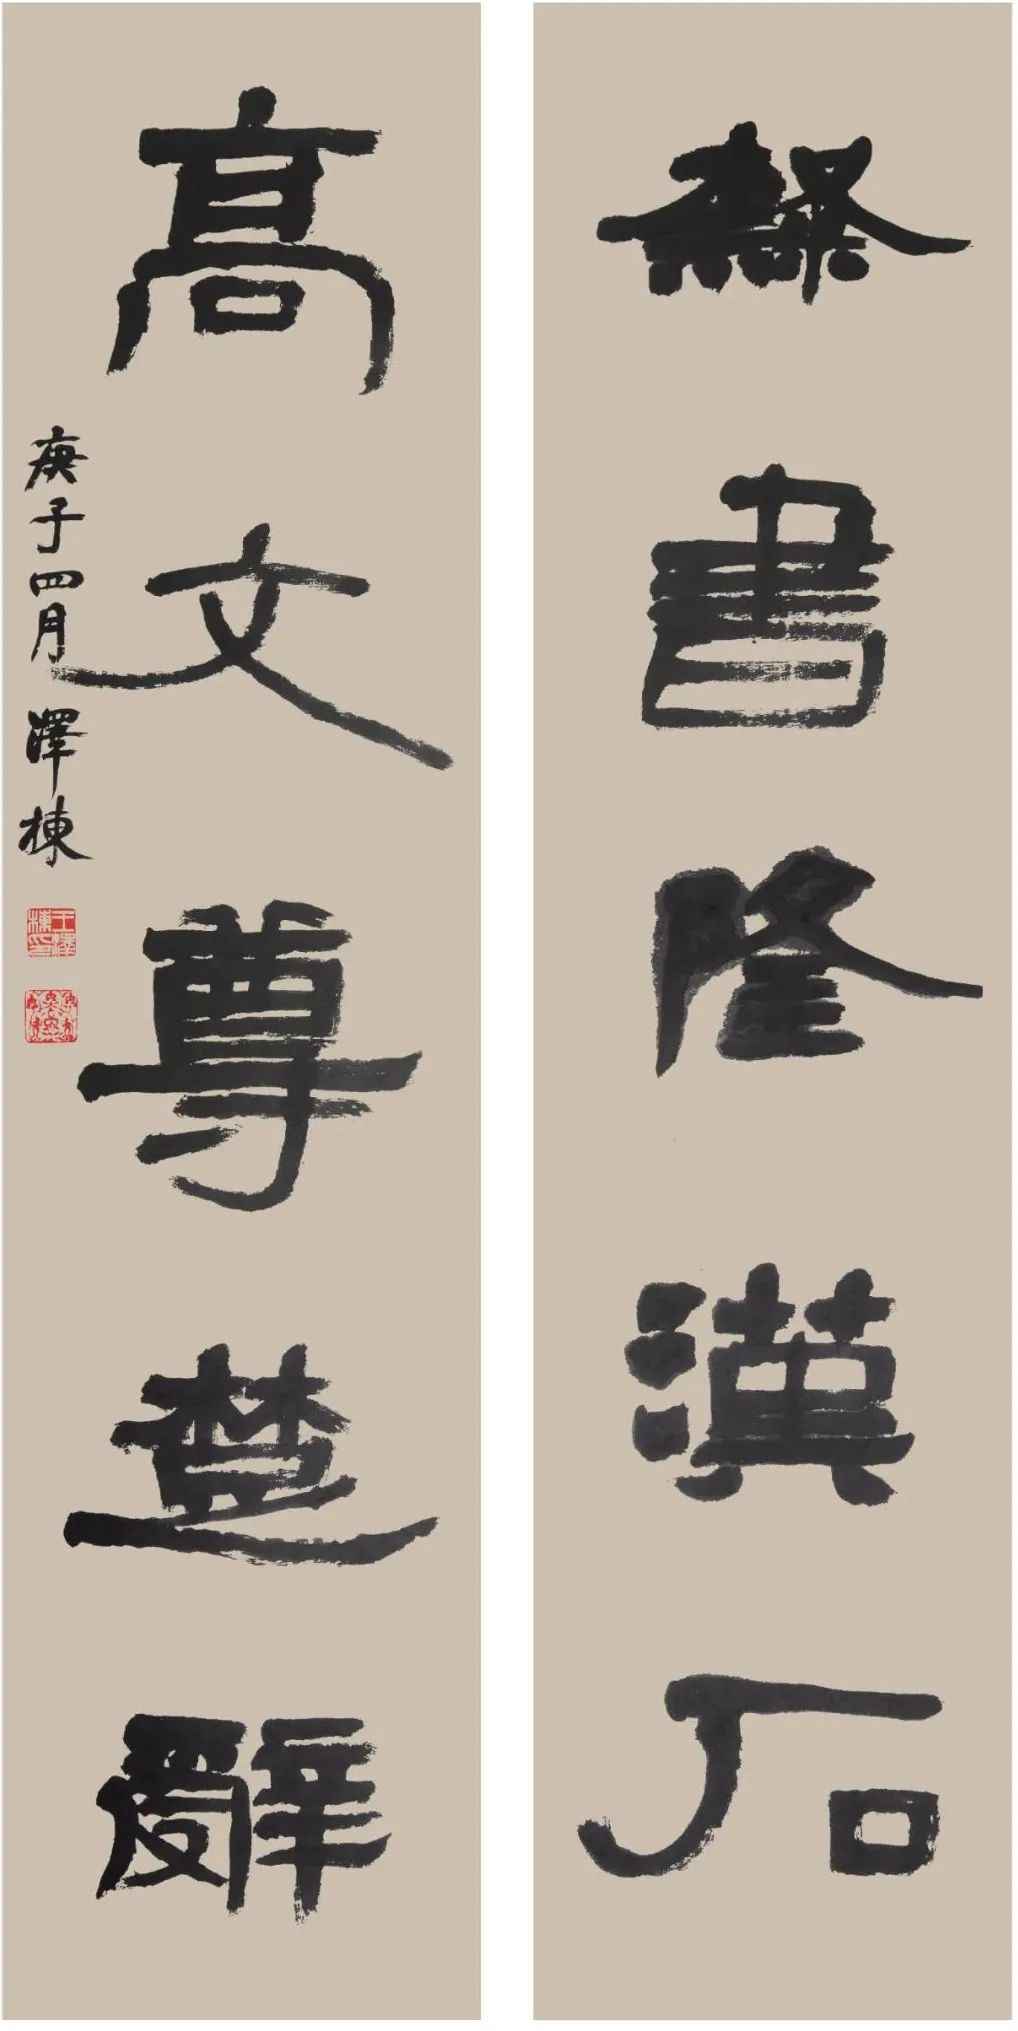 隸書隆漢石
高文尊楚辭
庚子四月澤棟
王澤棟印